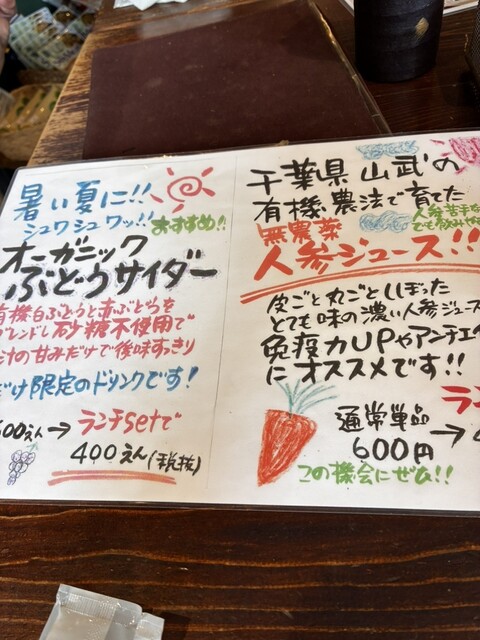 暑い夏に!!
シュワシュワッ!! おすすめ!!
オーガニック
ぶどうサイダー
有機白ぶどうと赤ぶどうを
ブレンドし砂糖不使用で
汁の甘みだけで後味すっきり
だけ限定のドリンクです!
500えん→ランチsetで
400えん(税抜)
千葉県山武の
有機農法で育てた
無農薬
人参ジュース!!
皮ごと丸ごとしぼった
とても味の濃い人参ジュース
免疫力UPやアンチエ
にオススメです!!
ラン
通常単品
600円→
この機会にぜひ!!